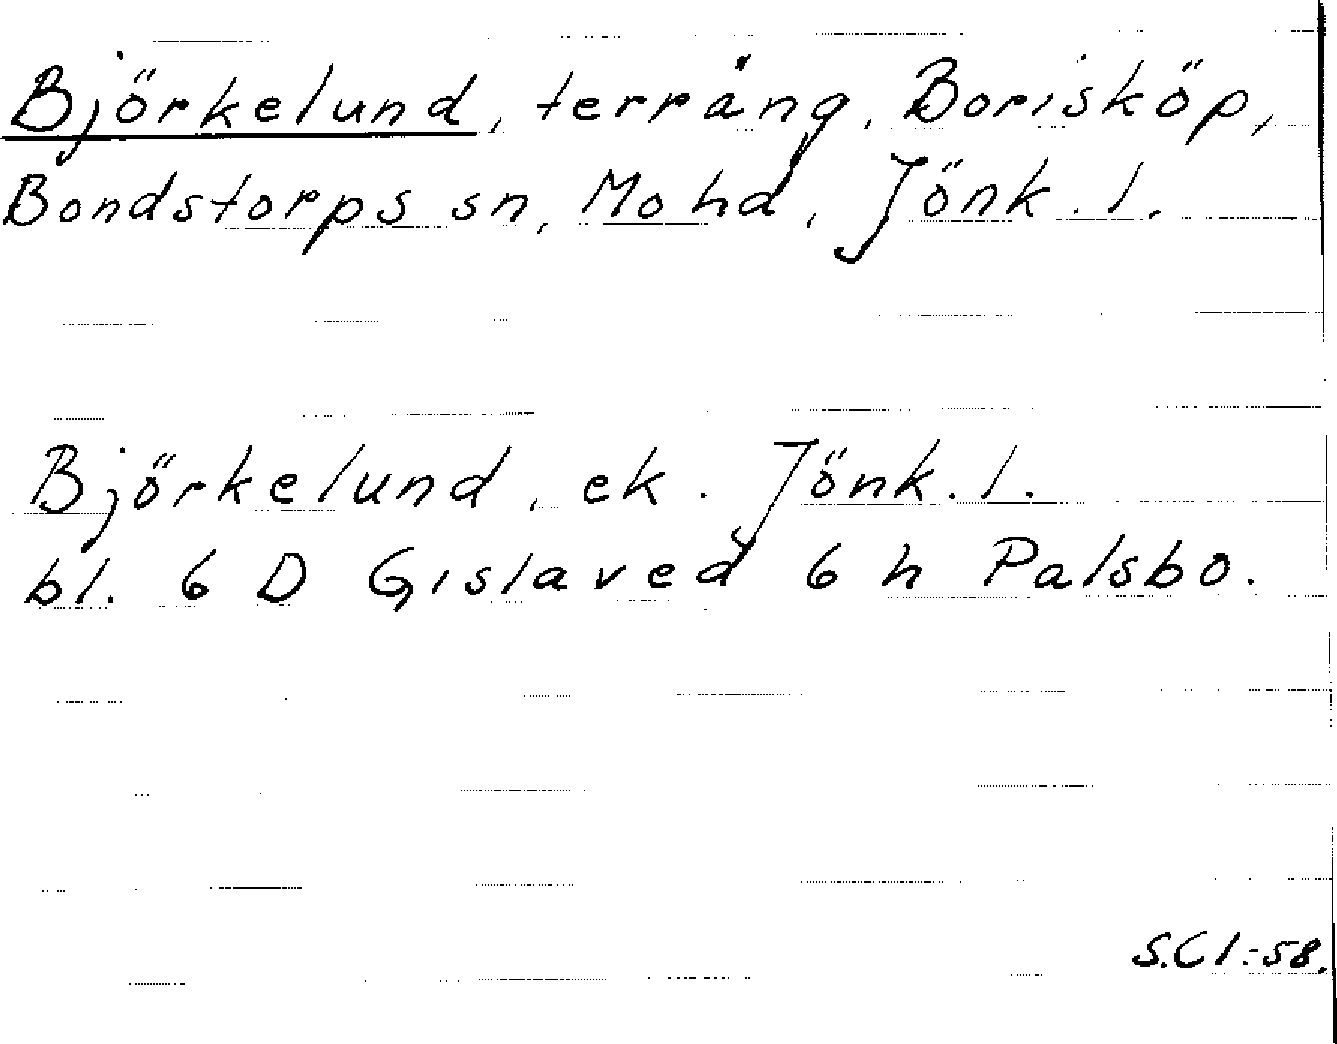 Björkelund, terräng, Borisköp,
Bondstorps sn, Mo hd, Jönk. l.
Björkelund, ek. Jönk. l.
bl. 6 D Gislaved 6 h Palsbo.
S.Cl.-58.